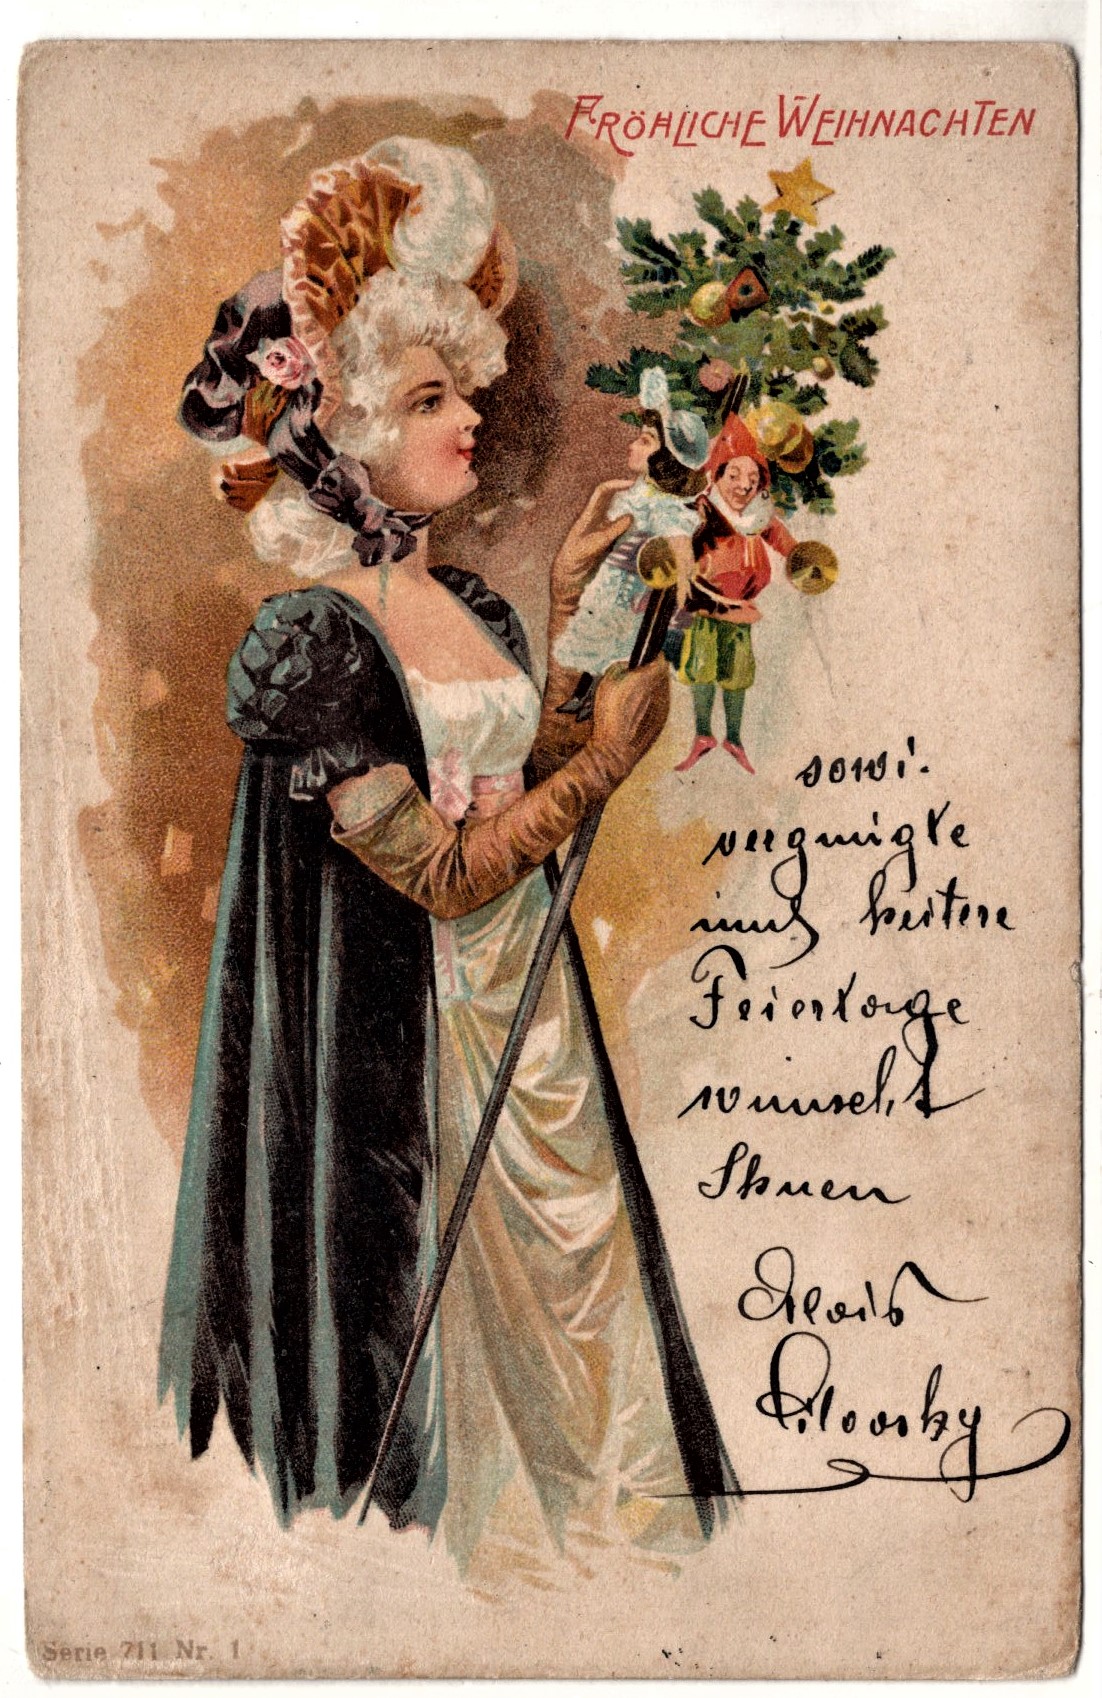 FRÖHLICHE WEIHNACHTEN
sowi.
vergnuigte
und heitere
Feiertage
wunscht
Ihnen
Alois
Pilovsky
Serie 711 Nr. 1